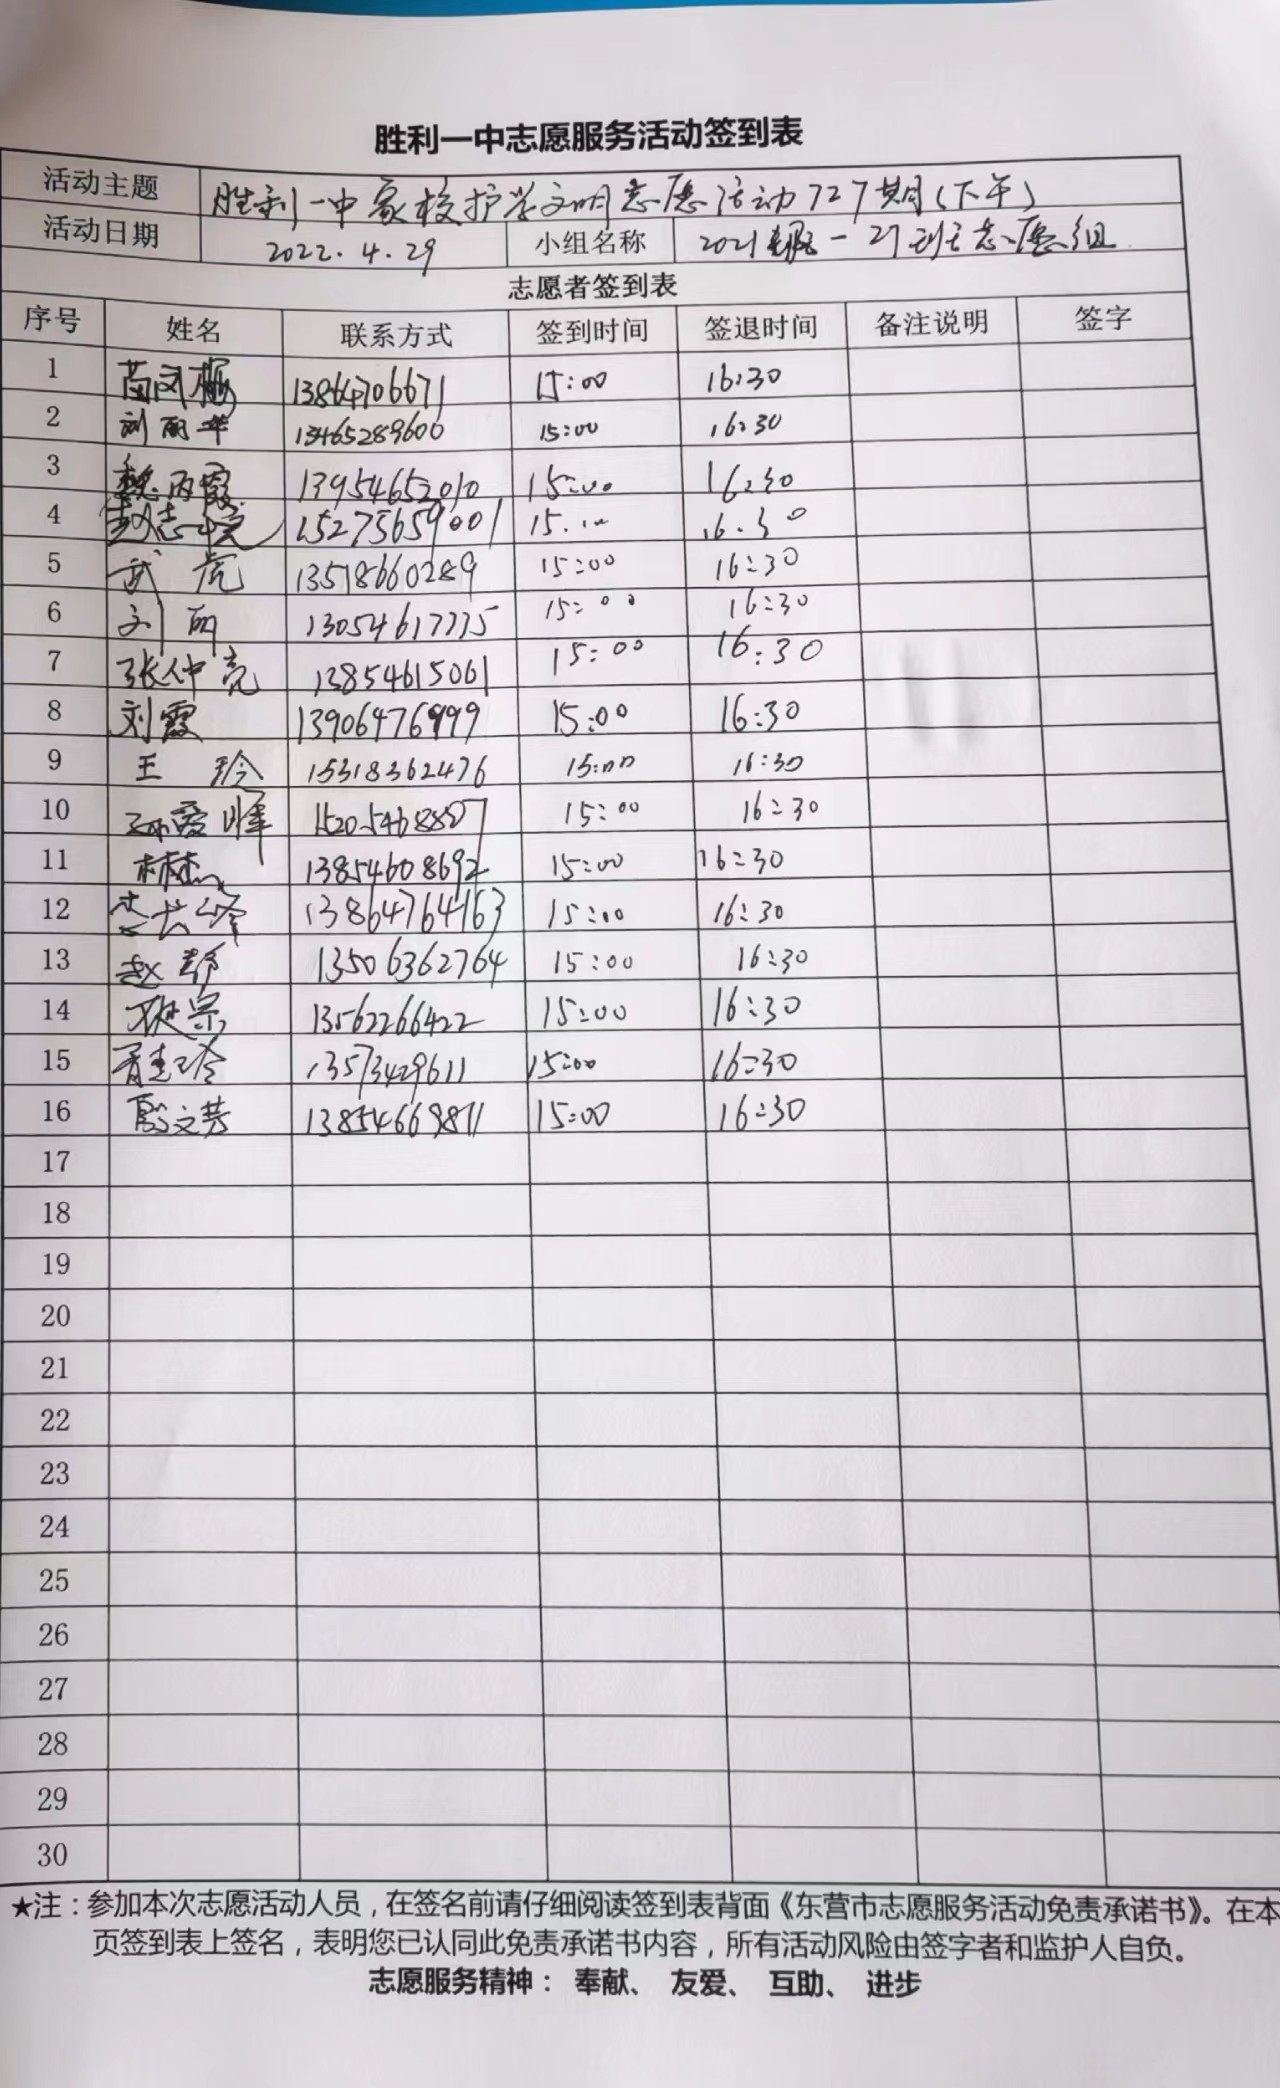 胜利一中志愿服务活动签到表
活动主题 胜利一中家校护学文明志愿活动727期(下午)
活动日期 2022.4.29 小组名称 2021级-21班志愿组
志愿者签到表
序号 姓名 联系方式 签到时间 签退时间 备注说明 签字
1 13864706671 15:00 16:30
2 刘丽华 13465289600 15:00 16:30
3 魏丙霞 13954652010 15:00 16:30
4 赵志 15275659001 15:00 16:30
5 武虎 13518660289 15:00 16:30
6 刘丽 13054617775 15:00 16:30
7 张仲亮 13854615061 15:00 16:30
8 刘霞 13906476999 15:00 16:30
9 王玲 15318362476 15:00 16:30
10 孙爱峰 15205468807 15:00 16:30
11 林杰 13854608692 15:00 16:30
12 13864764163 15:00 16:30
13 赵静 13506362764 15:00 16:30
14 13562266422 15:00 16:30
15 13573429611 15:00 16:30
16 殷文芳 13854669811 15:00 16:30
17
18
19
20
21
22
23
24
25
26
27
28
29
30
★注：参加本次志愿活动人员，在签名前请仔细阅读签到表背面《东营市志愿服务活动免责承诺书》。在本
页签到表上签名，表明您已认同此免责承诺书内容，所有活动风险由签字者和监护人自负。
志愿服务精神： 奉献、 友爱、 互助、 进步